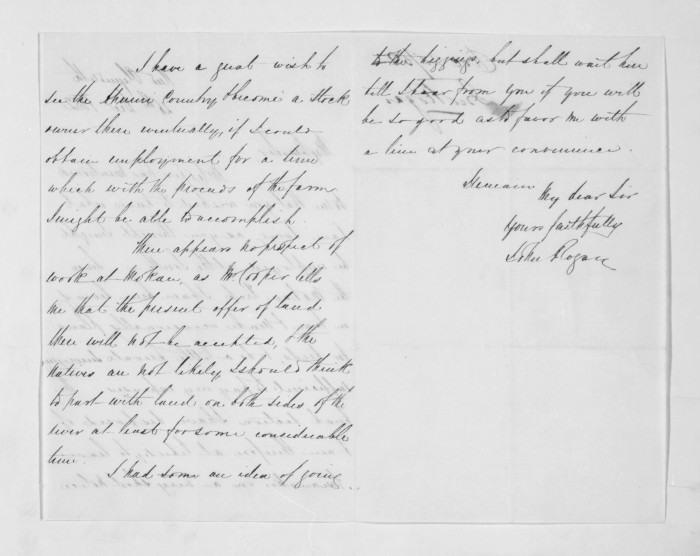 I have a great wish to
see the Ahuriri Country & become a Stock
owner there eventually, if I could
obtain employment for a time
which with the proceeds of the farm
I might be able to accomplish.
There appears no prospect of
work at Mokau, as Mr Cooper tells
me that the present offer of land
there will not be accepted, & the
natives are not likely I should think
to part with land on both sides of the
river at least for some considerable
time.
I had some an idea of going
to the diggings. but shall wait here
till I hear from you if you will
be so good as to favor me with
a line at your convenience.
I remain My dear Sir
Yours faithfully
John Rogan